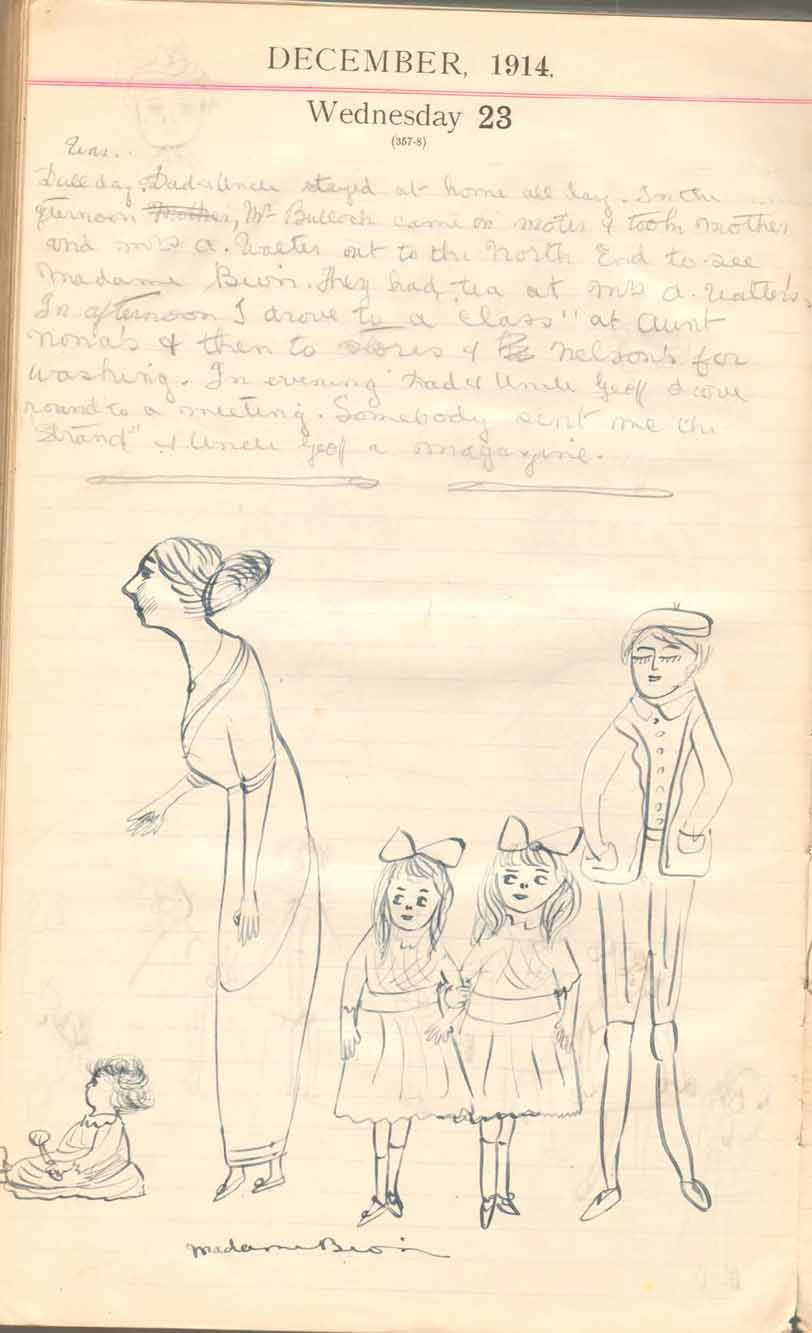 DECEMBER, 1914.
Wednesday 23
(357-8)
Dull day. Dad & Uncle stayed at home all day. In the
fternoon Mother, Mr Bulloch came in motor & took Mother
and Mrs A. Walter out to the North End to see
Madame Bewin. They had tea at Mrs A. Walter's.
In afternoon I drove to a "Class" at Aunt
Nona's & then to stores & Nelson's for
washing. In evening Dad & Uncle Geoff drove
round to a meeting. Somebody sent me the
"Strand" & Uncle Geoff a magazine.
Madame Bewin